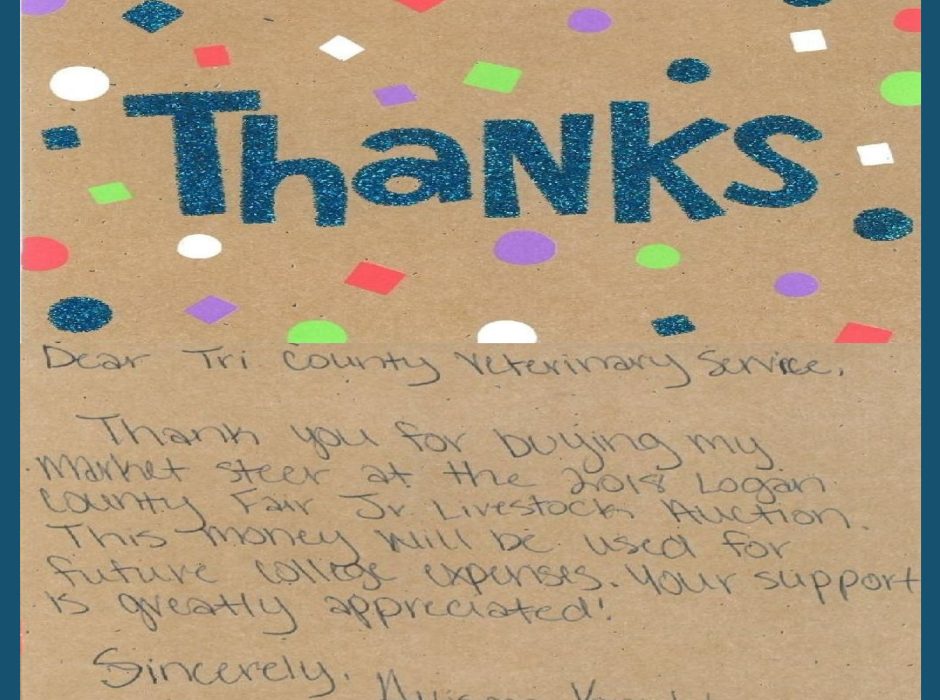 ThaNKS
Dear Tri County Veterinary Service,
Thank you for buying my
market steer at the 2018 Logan
County Fair Jr. Livestock Auction.
This money will be used for
future college expenses. Your support
is greatly appreciated!
Sincerely,